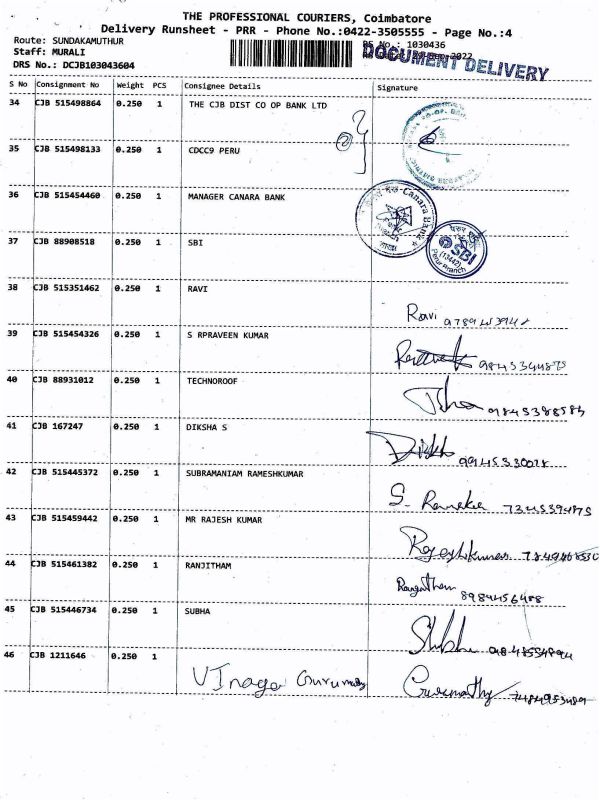 THE PROFESSIONAL COURIERS, Coimbatore
Delivery Runsheet - PRR - Phone No.:0422-3505555 - Page No.:4
Route: SUNDAKAMUTHUR
RS No.: 1030436
Staff: MURALI
DOCUMENT DELIVERY
DRS No.: DCJB103043604
S No Consignment No Weight PCS Consignee Details Signature
34 CJB 515498864 0.250 1 THE CJB DIST CO OP BANK LTD
35 CJB 515498133 0.250 1 CDCC9 PERU
36 CJB 515454460 0.250 1 MANAGER CANARA BANK Canara Bank
37 CJB 88908518 0.250 1 SBI SBI (13442) Branch
38 CJB 515351462 0.250 1 RAVI Ravi
39 CJB 515454326 0.250 1 S RPRAVEEN KUMAR 9845344875
40 CJB 88931012 0.250 1 TECHNOROOF 9845398583
41 CJB 167247 0.250 1 DIKSHA S 9945330078
42 CJB 515445372 0.250 1 SUBRAMANIAM RAMESHKUMAR S. 7345394875
43 CJB 515459442 0.250 1 MR RAJESH KUMAR Rajeshkumar
44 CJB 515461382 0.250 1 RANJITHAM 8984456488
45 CJB 515446734 0.250 1 SUBHA
46 CJB 1211646 0.250 1 Gurumathy 7484953489